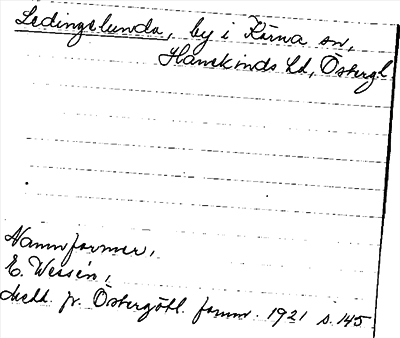 Ledingslunda, by i Kärna sn,
Hanekinds hd, Östergl.
Namnformer,
E. Wessén,
Medd. fr. Östergötl. fornm. 1921 s. 145